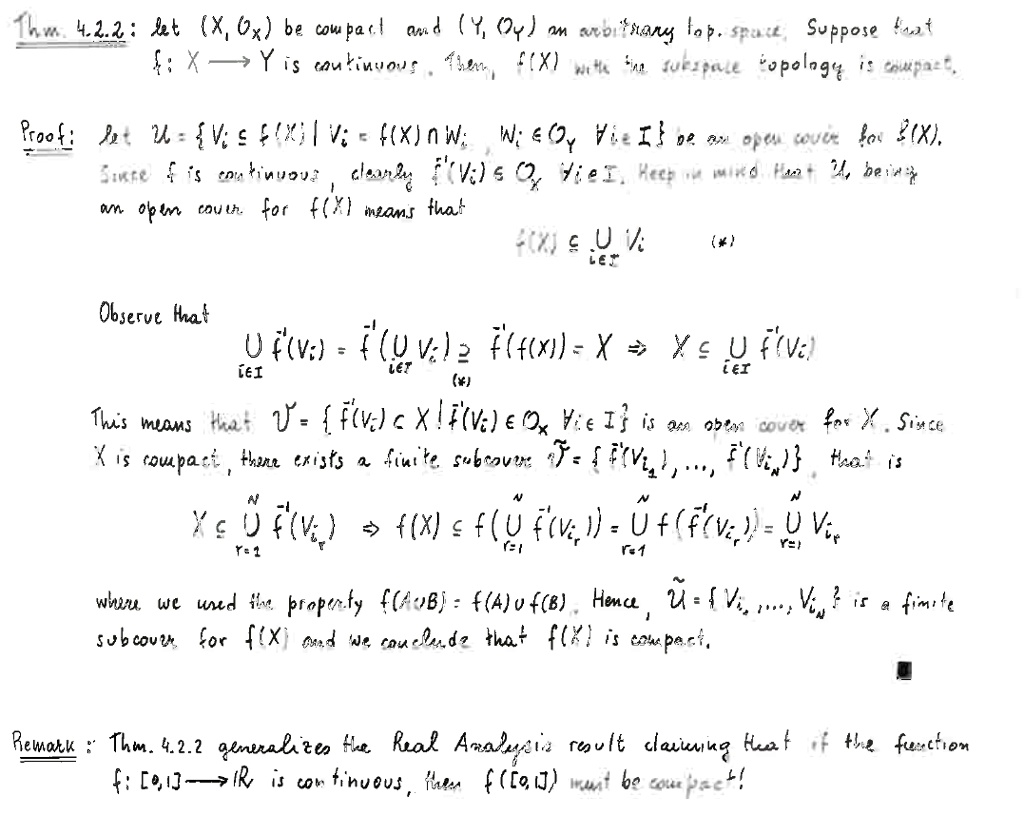 Thm. 4.2.2: let (X, O_X) be compact and (Y, O_Y) an arbitrary top. space. Suppose that
f: X ⟶ Y is continuous. Then, f(X) with the subspace topology is compact.
Proof: let U = { V_i ⊆ f(X) | V_i = f(X) ∩ W_i, W_i ∈ O_Y ∀ i ∈ I } be an open cover for f(X).
Since f is continuous, clearly f^{-1}(V_i) ∈ O_X ∀ i ∈ I. Keep in mind that U, being
an open cover for f(X) means that
f(X) ⊆ ⋃_{i∈I} V_i (*)
Observe that
⋃_{i∈I} f^{-1}(V_i) = f^{-1}(⋃_{i∈I} V_i) ⊇_{(*)} f^{-1}(f(X)) = X ⇒ X ⊆ ⋃_{i∈I} f^{-1}(V_i)
This means that V = { f^{-1}(V_i) ⊂ X | f^{-1}(V_i) ∈ O_X ∀ i ∈ I } is an open cover for X. Since
X is compact, there exists a finite subcover Ṽ = { f^{-1}(V_{i_1}), ..., f^{-1}(V_{i_N}) }, that is
X ⊆ ⋃_{r=1}^{N} f^{-1}(V_{i_r}) ⇒ f(X) ⊆ f(⋃_{r=1}^{N} f^{-1}(V_{i_r})) = ⋃_{r=1}^{N} f(f^{-1}(V_{i_r})) = ⋃_{r=1}^{N} V_{i_r}
where we used the property f(A∪B) = f(A) ∪ f(B). Hence, Ũ = { V_{i_1}, ..., V_{i_N} } is a finite
subcover for f(X) and we conclude that f(X) is compact.
■
Remark: Thm. 4.2.2 generalizes the Real Analysis result claiming that if the function
f: [0,1] ⟶ ℝ is continuous, then f([0,1]) must be compact!